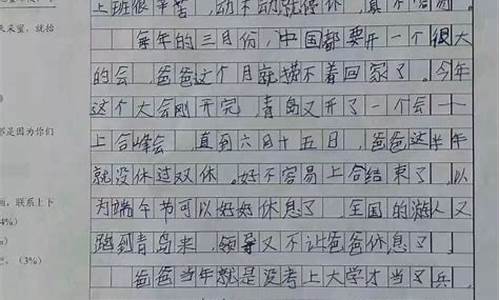 上班很辛苦，动不动就停休，真不容易。
每年的三月份，中国都要开一个很大
的会，爸爸这个月就横不着回家了。今年
这个大会刚开完，青岛又开了一个会——
上合峰会，直到六月十五日，爸爸这半年
就没休过双休。好不容易上合结束了，以
为端午节可以好好休息了，全国的游人又
跑到青岛来，领导又不让爸爸休息了。
爸爸当年就是没考上大学才当了兵，
天采望，就拾
都是因为你们
联系上下
4%)
（3%）